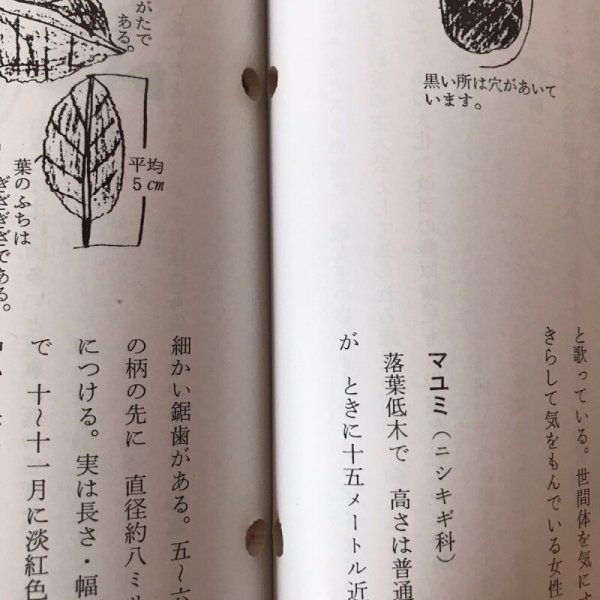 黒い所は穴があいて
います。
と歌っている。世間体を気にす
きらして気をもんでいる女性
マユミ（ニシキギ科）
落葉低木で 高さは普通
が ときに十五メートル近
がたで
ある。
平均
5cm
葉のふちは
ぎざぎざである。
細かい鋸歯がある。五〜六
の柄の先に 直径約八ミリ
につける。実は長さ・幅
で 十〜十一月に淡紅色